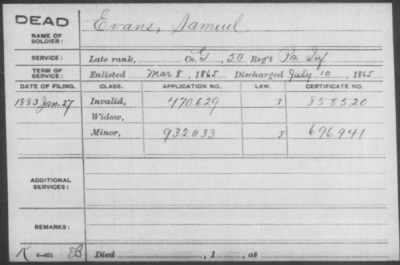 DEAD
NAME OF SOLDIER: Evans, Samuel
SERVICE: Late rank, Co. G, 50 Reg't Pa Inf
TERM OF SERVICE: Enlisted Mar 8, 1865. Discharged July 10, 1865
DATE OF FILING. CLASS. APPLICATION NO. LAW. CERTIFICATE NO.
1883 Jan. 27 Invalid, 470629 J 858520
Widow,
Minor, 932033 J 696941
ADDITIONAL SERVICES:
REMARKS:
K EB Died , 1 , at